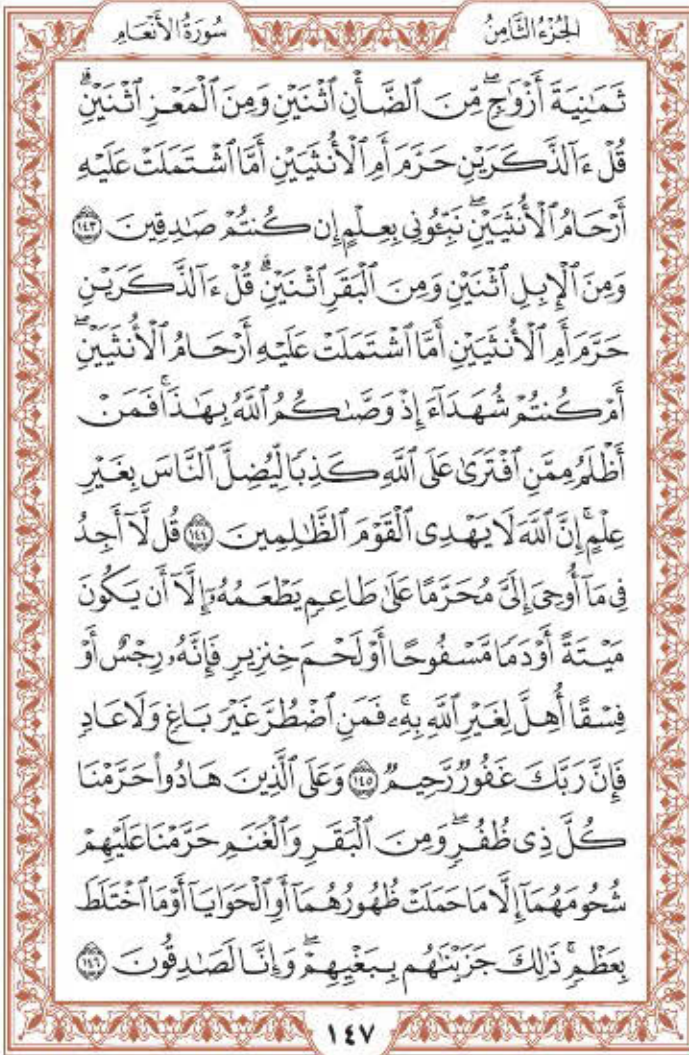 الجُزْءُ الثَّامِنُ سُورَةُ الأَنْعَامِ
ثَمَٰنِيَةَ أَزْوَٰجٖۖ مِّنَ ٱلضَّأْنِ ٱثْنَيْنِ وَمِنَ ٱلْمَعْزِ ٱثْنَيْنِۗ
قُلْ ءَآلذَّكَرَيْنِ حَرَّمَ أَمِ ٱلْأُنثَيَيْنِ أَمَّا ٱشْتَمَلَتْ عَلَيْهِ
أَرْحَامُ ٱلْأُنثَيَيْنِۖ نَبِّـُٔونِي بِعِلْمٍ إِن كُنتُمْ صَٰدِقِينَ ١٤٣
وَمِنَ ٱلْإِبِلِ ٱثْنَيْنِ وَمِنَ ٱلْبَقَرِ ٱثْنَيْنِۗ قُلْ ءَآلذَّكَرَيْنِ
حَرَّمَ أَمِ ٱلْأُنثَيَيْنِ أَمَّا ٱشْتَمَلَتْ عَلَيْهِ أَرْحَامُ ٱلْأُنثَيَيْنِۖ
أَمْ كُنتُمْ شُهَدَآءَ إِذْ وَصَّىٰكُمُ ٱللَّهُ بِهَٰذَاۚ فَمَنْ
أَظْلَمُ مِمَّنِ ٱفْتَرَىٰ عَلَى ٱللَّهِ كَذِبًا لِّيُضِلَّ ٱلنَّاسَ بِغَيْرِ
عِلْمٍۚ إِنَّ ٱللَّهَ لَا يَهْدِى ٱلْقَوْمَ ٱلظَّٰلِمِينَ ١٤٤ قُل لَّآ أَجِدُ
فِى مَآ أُوحِىَ إِلَىَّ مُحَرَّمًا عَلَىٰ طَاعِمٍ يَطْعَمُهُۥٓ إِلَّآ أَن يَكُونَ
مَيْتَةً أَوْ دَمًا مَّسْفُوحًا أَوْ لَحْمَ خِنزِيرٍ فَإِنَّهُۥ رِجْسٌ أَوْ
فِسْقًا أُهِلَّ لِغَيْرِ ٱللَّهِ بِهِۦۚ فَمَنِ ٱضْطُرَّ غَيْرَ بَاغٍ وَلَا عَادٍ
فَإِنَّ رَبَّكَ غَفُورٌ رَّحِيمٌ ١٤٥ وَعَلَى ٱلَّذِينَ هَادُوا۟ حَرَّمْنَا
كُلَّ ذِى ظُفُرٍۖ وَمِنَ ٱلْبَقَرِ وَٱلْغَنَمِ حَرَّمْنَا عَلَيْهِمْ
شُحُومَهُمَآ إِلَّا مَا حَمَلَتْ ظُهُورُهُمَآ أَوِ ٱلْحَوَايَآ أَوْ مَا ٱخْتَلَطَ
بِعَظْمٍۚ ذَٰلِكَ جَزَيْنَٰهُم بِبَغْيِهِمْۖ وَإِنَّا لَصَٰدِقُونَ ١٤٦
١٤٧